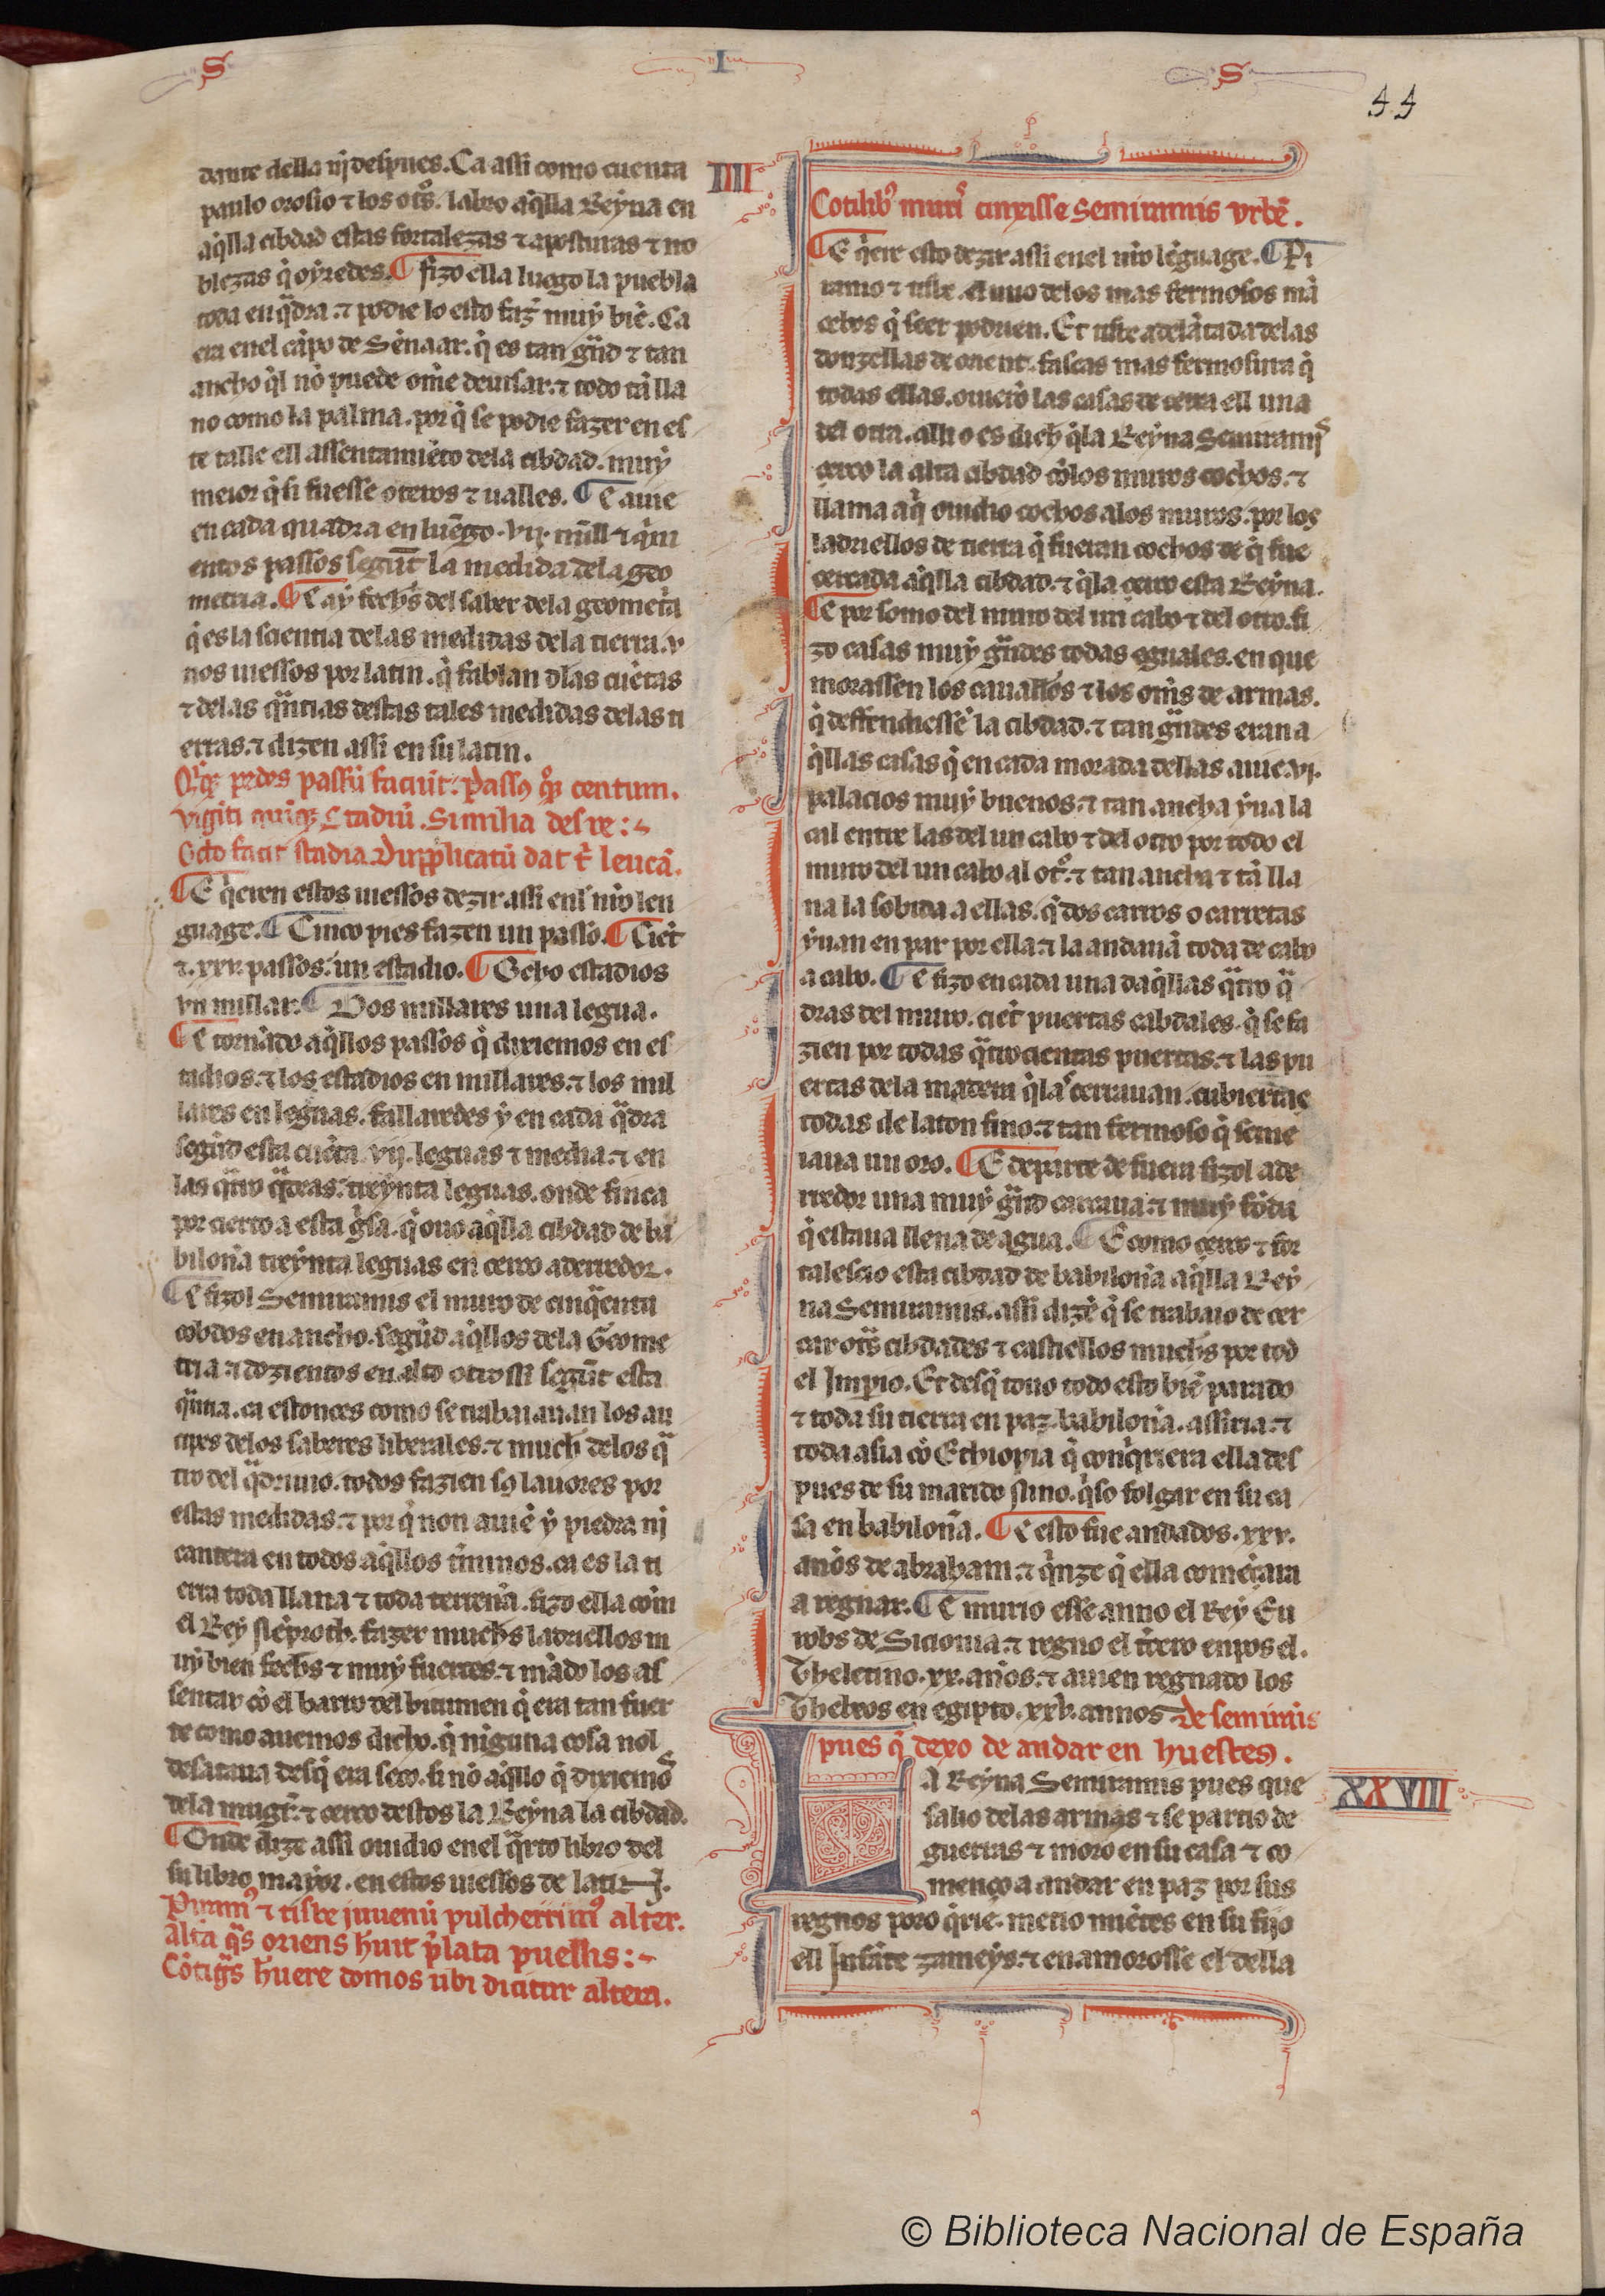 S I S
44
dante della nj despues. Ca assi como cuenta
paulo orosio ⁊ los otͦs. labro aq̃lla Reẏna en
aq̃lla cibdad estas fortalezas ⁊ aposturas ⁊ no
blezas q̃ oẏredes. ¶ fizo ella luego la puebla
toda en q̈dra. ⁊ podie lo esto faz̉ muẏ biẽ. Ca
era enel cãpo de Sẽnaar. q̃ es tan gr̃nd ⁊ tan
ancho q̃l nõ puede om̃e deuisar. ⁊ todo tã lla
no como la palma. por q̃ se podie fazer en es
te talle ell assentamiẽto dela cibdad. muẏ
meior q̃ si fuesse oteros ⁊ ualles. ¶ E auie
en cada quadra en luẽgo. vij. mill ⁊ q̃ni
entos passos segũt la medida dela geo
metria. ¶ E aẏ fechs̉ del saber dela geometᷓa
q̃ es la sciencia delas medidas dela tierra. v
nos uiessos por latin. q̃ fablan dlas cuẽtas
⁊ delas q̈ntias destas tales medidas delas ti
erras. ⁊ dizen assi en su latin.
Qͥnqꝫ pedes passũ faciũt. passꝯ qͦqꝫ centum.
Vigĩti quiqꝫ stadiũ. Si milia des re:~
Octo facit stadia. Duplicatũ dat t̉ leucã.
¶ E q̃eren estos uiessos dezir assi enl̉ nr̃o len
guage. ¶ Cinco pies fazen un passo. ¶ Ciẽt
⁊ .xxv. passos. un estadio. ¶ Ocho estadios
vn millar. ¶ Dos millares una legua.
¶ E tornãdo aq̃llos passos q̃ dixiemos en es
tadios. ⁊ los estadios en millares. ⁊ los mil
lares en leguas. fallaredes ẏ en cada q̈dra
segũd esta cuẽta .vij. leguas ⁊ media. ⁊ en
las q̈tro q̈dras. treẏnta leguas. onde finca
por cierto a esta gͥsa. q̃ ouo aq̃lla cibdad de ba
bilonia treẏnta leguas en cerco aderredor.
¶ E fizol Semiramis el muro de cinq̈enta
cobdos en ancho. segũd aq̃llos dela Geome
tria. ⁊ dozientos en alto otro ssi segũt esta
q̈ntia. ca estonces como se trabaiauan los au
ctores delos saberes liberales. ⁊ much̉ delos q̈
tro del q̈driuio. todos fazien sꝯ lauores por
estas medidas. ⁊ por q̃ non auiẽ ẏ piedra nj
cantera en todos aq̃llos t̉minos. ca es la ti
erra toda llana ⁊ toda terreña. fizo ella com
el Reẏ Nẽproth. fazer muchs̉ ladriellos m
uẏ bien fechs̉ ⁊ muẏ fuertes. ⁊ mãdo los as
sentar cõ el barro del bitumen q̃ era tan fuer
te como auemos dicho. q̃ nĩguna cosa nol
desataua desq̃ era seco. si nõ aq̃llo q̃ dixiemoˢ
dela mugr̃. ⁊ cerco destos la Reẏna la cibdad.
¶ Onde dize assi ouidio enel q̈rto libro del
su libro mayor. en estos uiessos de latin.
Piramꝰ ⁊ tisbe juuenũ pulcherrimꝰ alter.
Alta q̈s oriens huit p̃lata puellis:~
Cõtigᷓs huere domos ubi dicitur altera.
IIII
Coctilibꝰ murͥ cinxisse Semiramis vrbẽ.
¶ E q̃ere esto dezir assi enel nr̃o lẽguage. ¶ Pi
ramo ⁊ tisbe. el uno delos mas fermosos mã
cebos q̃ seer podrien. Et tisbe adelãtada delas
donzellas de orient. fascas mas fermosura q̃
todas ellas. ouierõ las casas de cerca ell una
del otra. alli o es dich̉ q̃la Reẏna Semiramiˢ
cerco la alta cibdad cõlos muros cochos. ⁊
llama aq̃ ouidio cochos alos muros. por los
ladriellos de tierra q̃ fueran cochos de q̃ fue
cercada aq̃lla cibdad. ⁊ q̃la cerco esta Reẏna.
¶ E por somo del muro del un cabo ⁊ del otro. fi
zo casas muẏ gr̃ndes todas eguales. en que
morassen los cauallos̉ ⁊ los om̃s de armas.
q̃ deffendiessẽ la cibdad. ⁊ tan gr̃ndes eran a
q̃llas casas q̃ en cada morada dellas auie .vj.
palacios muẏ buenos. ⁊ tan ancha ẏua la
cal entre las del un cabo ⁊ del otro por todo el
muro del un cabo al otͦ. ⁊ tan ancha ⁊ tã lla
na la sobida a ellas. q̃ dos carros o carretas
ẏuan en par por ella. ⁊ la andauã toda de cabo
a cabo. ¶ E fizo en cada una daq̃llas q̈tro q̈
dras del muro. ciẽt puertas cabdales. q̃ se fa
zien por todas q̈trocientas puertas. ⁊ las pu
ertas dela madera q̃las cerrauan. cubiertas
todas de laton fino. ⁊ tan fermoso q̃ seme
iaua un oro. ¶ E departe de fuera fizol ader
redor una muẏ gr̃nd carcaua. ⁊ muẏ fõda
q̃ estaua llena de agua. ¶ E como cerco ⁊ for
talescio esta cibdad de babilonia aq̃lla Reẏ
na Semiramis. assi dizẽ q̃ se trabaio de cer
car otᷓs cibdades ⁊ castiellos muchs̉ por tod
el Imperio. Et desq̃ touo todo esto biẽ parado
⁊ toda su tierra en paz. babilonia. assiria. ⁊
toda asia cõ Ethiopia q̃ conq̃riera ella des
pues de su marido nino. q̃so folgar en su ca
sa en babilonia. ¶ E esto fue andados .xxv.
anõs de abraham. ⁊ q̃nze q̃ ella comẽçara
a regnar. ¶ E murio esse anno el Reẏ Eu
robs de Siciona. ⁊ regno el t̉cero enpos el.
Thelcuno .xx. anõs. ⁊ auien regnado los
Thebeos en egipto .xxv. annos. de semiramis
pues q̃ dexo de andar en huestes.
XXVIII
LA Reẏna Semiramis pues que
salio delas armas ⁊ se partio de
guerras ⁊ moro en su casa ⁊ co
menço a andar en paz por sus
regnos poro q̃rie. metio miẽtes en su fijo
ell Infãte zameẏs. ⁊ enamorosse el della
© Biblioteca Nacional de España